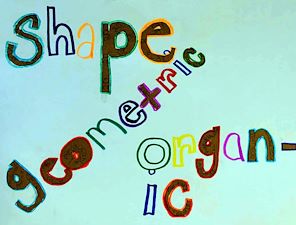 shape
geometric
organ-
ic